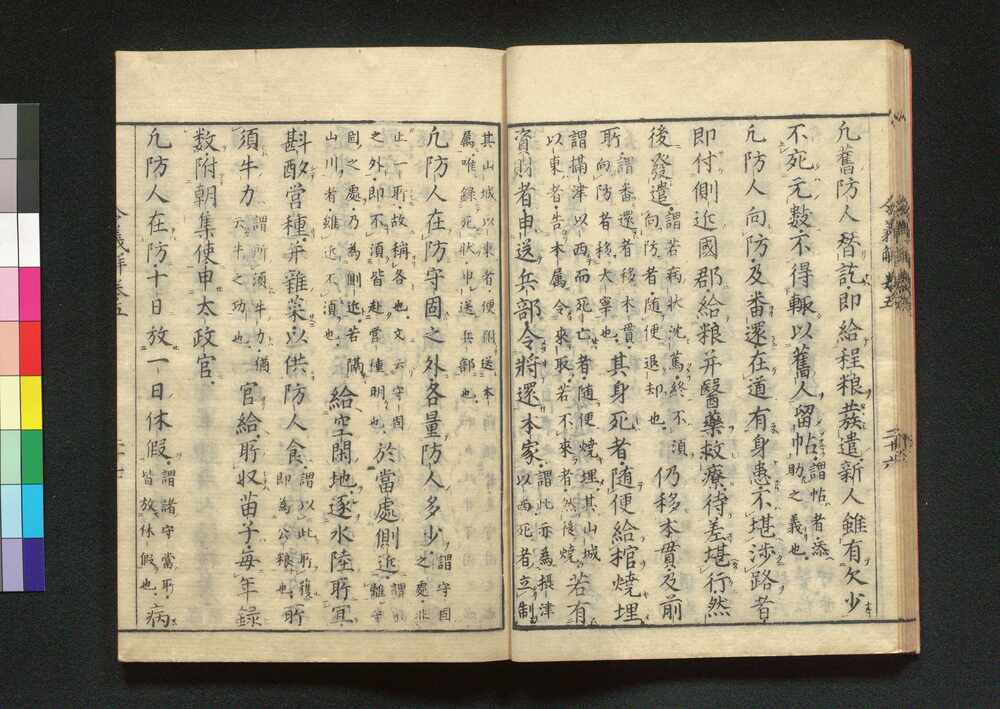 凢舊防人替訖即給程粮𤼵遣新人雖有欠少
不充元數不得輙以舊人留帖謂帖者添助之義也
凢防人向防及番還在道有身患不堪涉路者
即付側近國郡給粮并醫藥救療待差堪行然
後發遣謂若病狀沈篤終不須向防者随便退却也仍移本貫及前
所謂番還者移本貫向防者移大宰也其身死者随便給棺燒埋
謂攝津以西而死亡者随便燒埋其山城以東者告本属令來取若不來者然後燒若有
資財者申送兵部令將還本家謂此亦為攝津以西死者立制
其山城以東者便附送本属唯錄死狀申送兵部也
凢防人在防守固之外各量防人多少謂守固之處非
止一所故称各也文云守固之外即不須皆赴營種明也於當處側近謂雖守
固之處乃為側近若隔山川者雖近不須也給空閑地逐水陸所冝
斟酌營種并雜菜以供防人食謂以此所穫即為公粮也所
須牛力謂所須牛力猶云牛之功也官給所収苗子毎年録
數附朝集使申太政官
凢防人在防十日放一日休假謂諸守當所皆放休假也病
令義解卷五